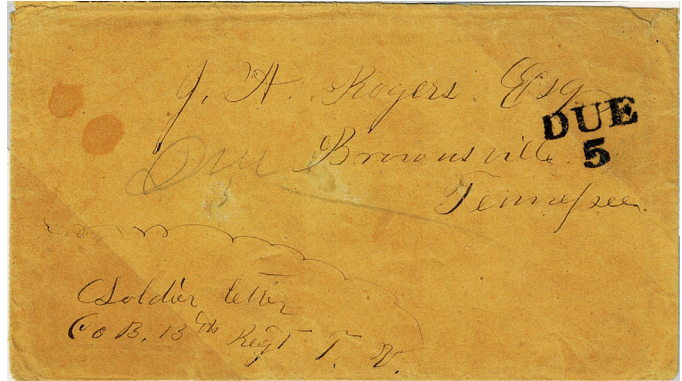 J. A. Rogers. Esq
DUE
5
Due Brownsville
Tennessee.
Soldier letter
Co B. 13th Regt T. V.